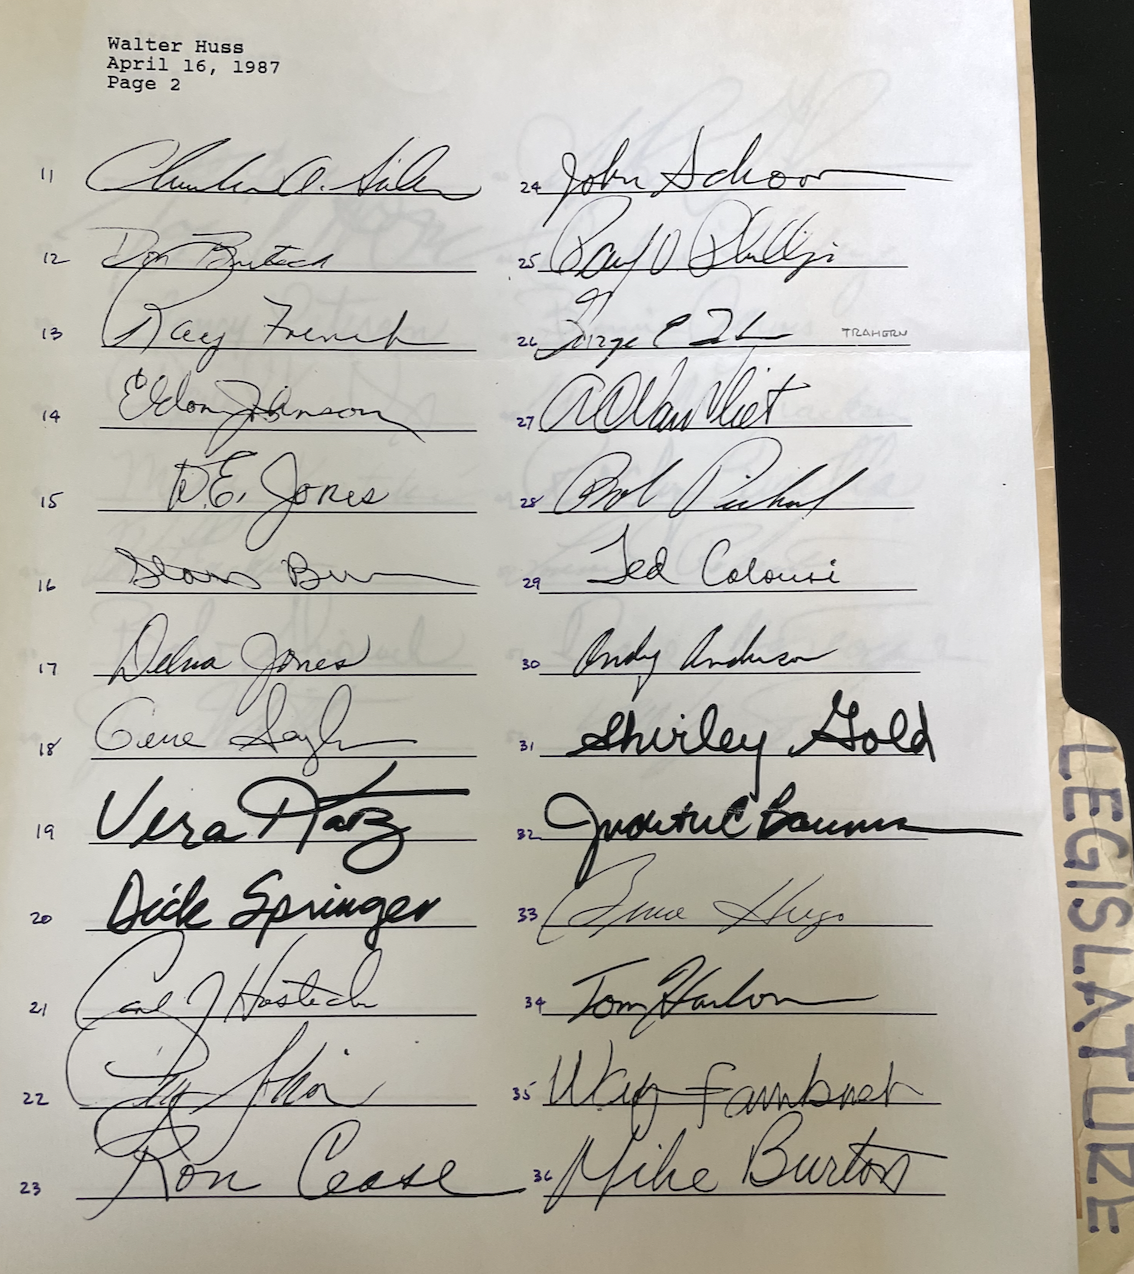 Walter Huss
April 16, 1987
Page 2
11
12 Don
13 Ray French
14 Eldon Johnson
15 D.E. Jones
16
17 Delna Jones
18 Gene Sayler
19 Vera Katz
20 Dick Springer
21 Carl J Hosticka
22
23 Ron Cease
24 John Schoon
25 Paul D. Phillips
26 George E TRAHERN
27 A C Van Vliet
28 Bob Pickard
29 Ted Calouri
30 Andy Anderson
31 Shirley Gold
32 Judith C Bauman
33 Bruce Hugo
34 Tom Hanlon
35 Fawbush
36 Mike Burton
LEGISLATURE